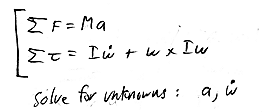 ∑F = Ma
∑τ = Iẇ + w × Iw
solve for unknowns : a, ẇ